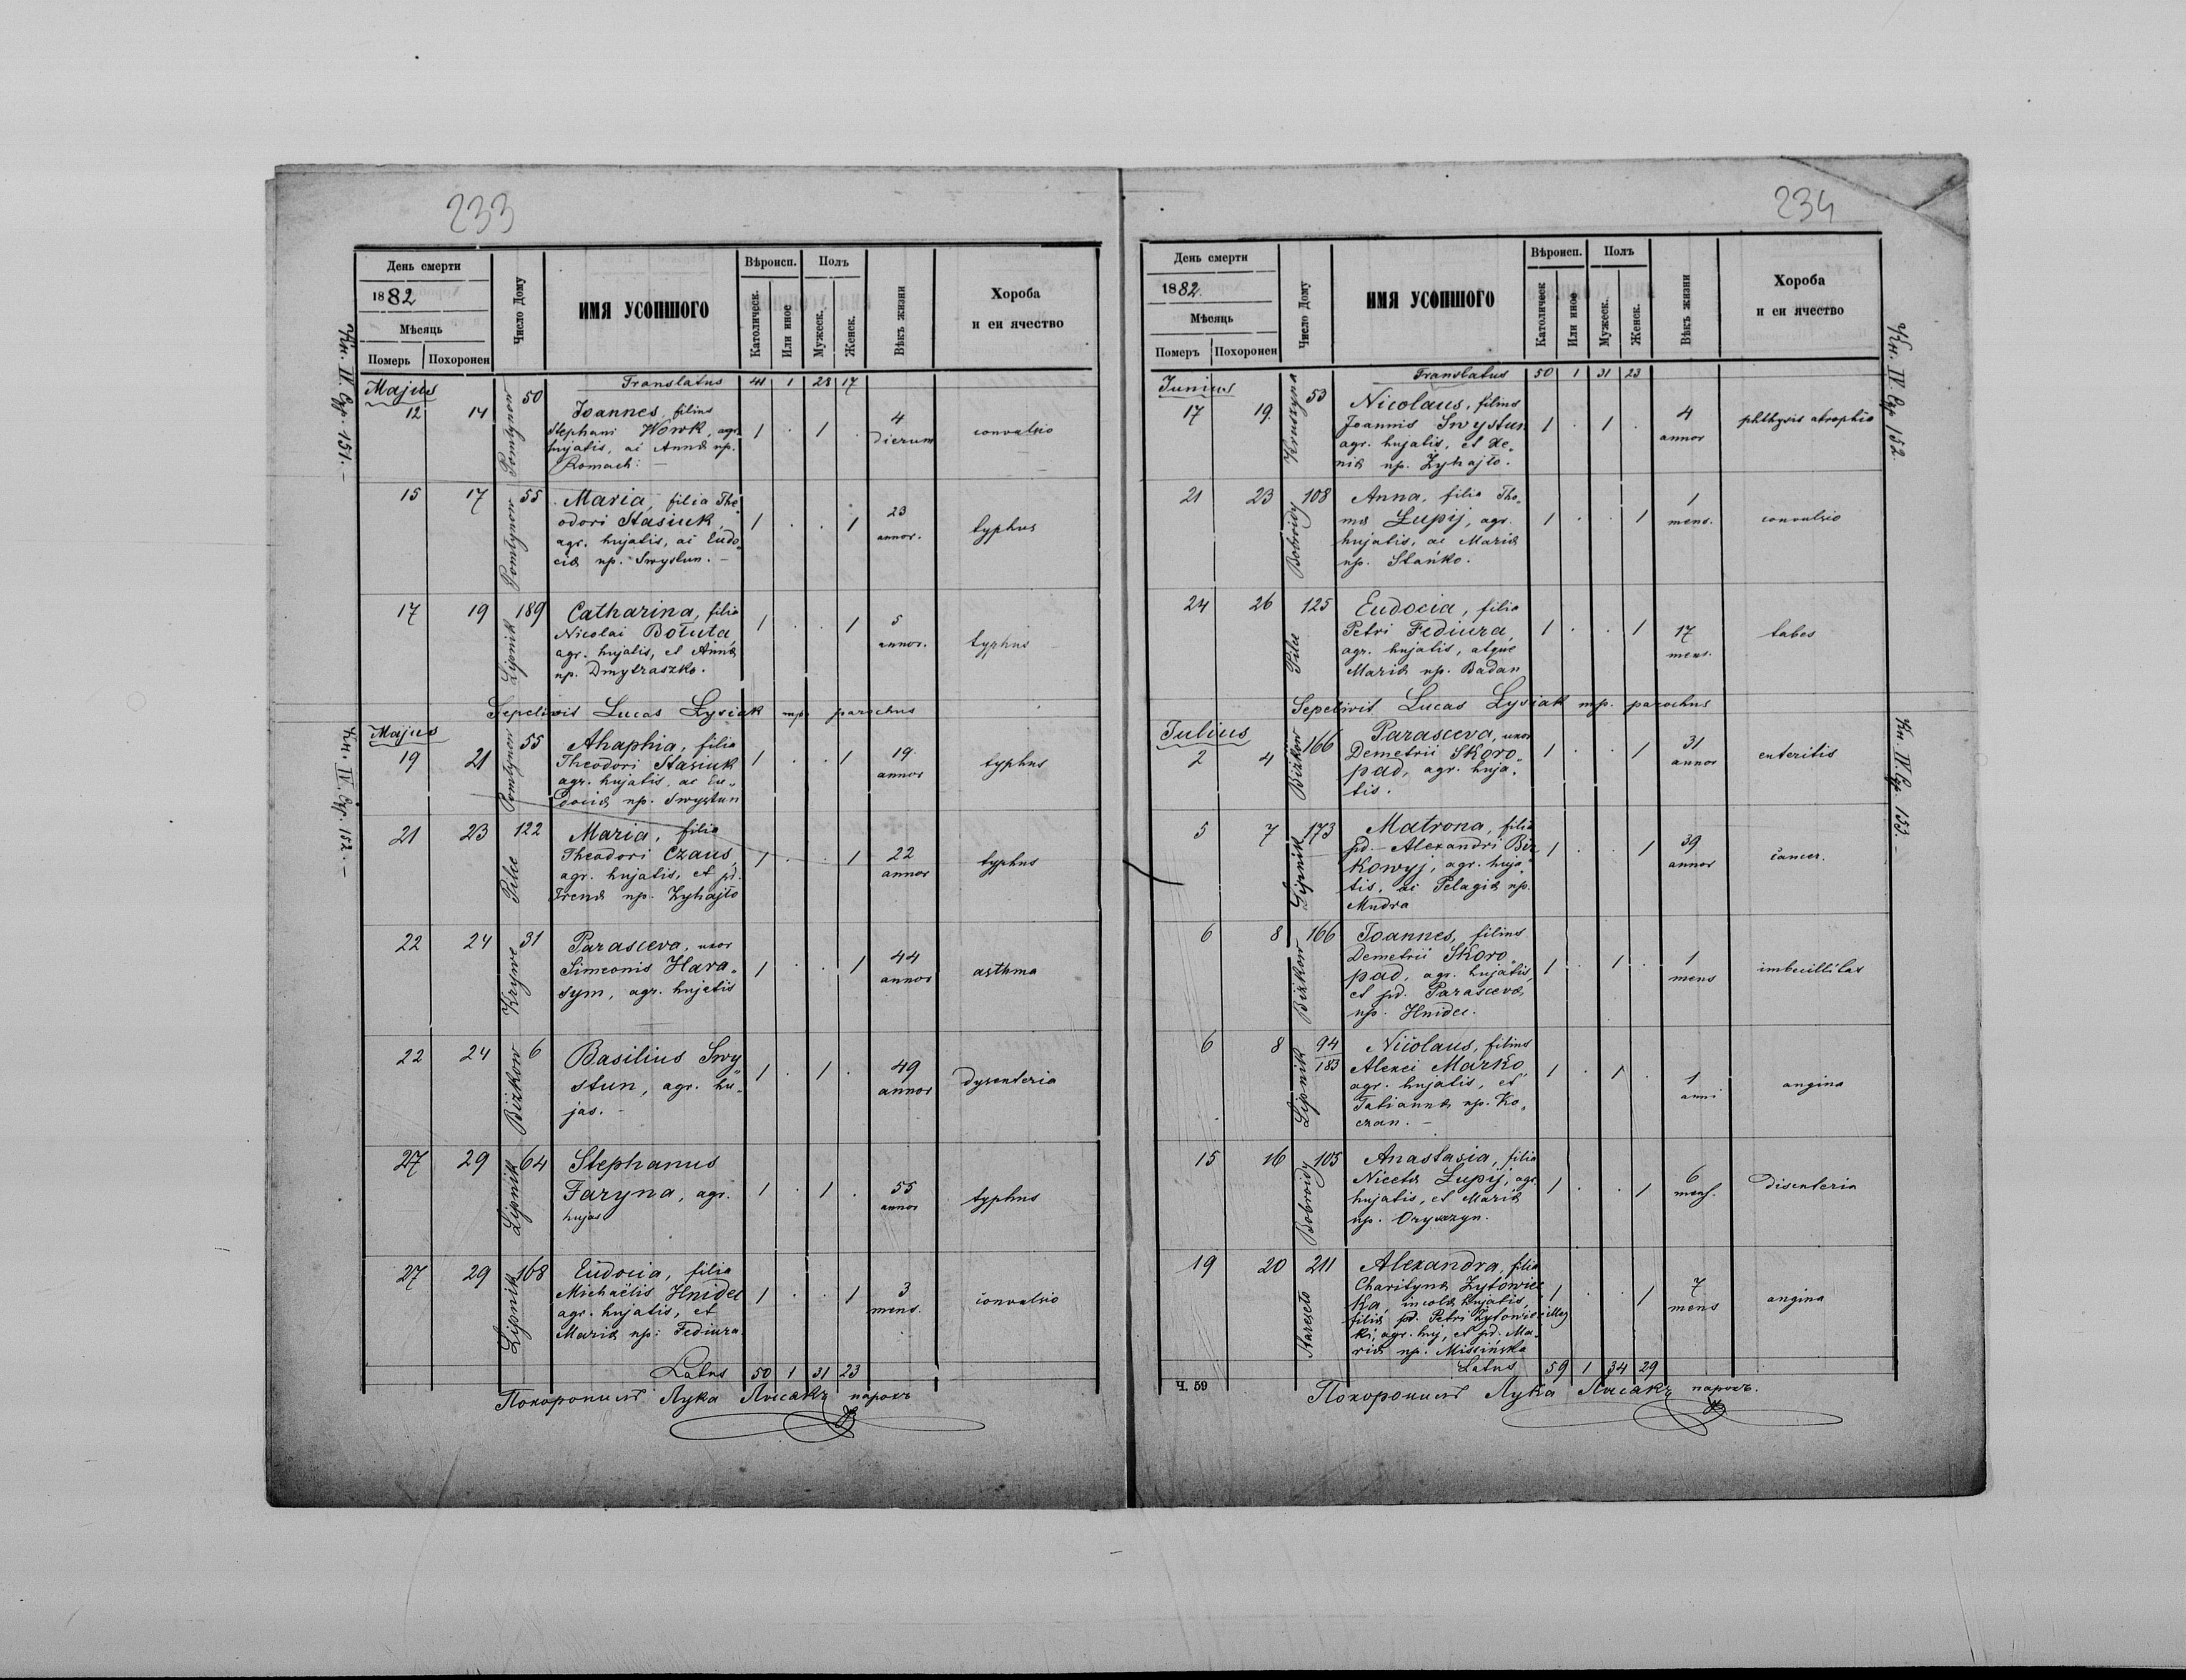 233
День смерти
1882
Мѣсяць
Померъ Похоронен
Число Дому
ИМЯ УСОПШОГО
Вѣроисп.
Католическ.
Или иное
Полъ
Мужеск.
Женск.
Вѣкъ жизни
Хороба
и еи ячество
Кн. IV. Стр. 151. –
Translatus 41 1 28 17
Majus
12 14 Pomlynow 50 Joannes, filius
Stephani Wowk, agr.
hujatis, ac Annæ np.
Romach: –
1 . 1 . 4
dierum
convulsio
15 17 Pomlynow 55 Maria, filia The„
odori Stasiuk,
agr. hujatis, ac Eudo„
ciæ np. Swystun. –
1 . . 1 23
annor.
typhus
17 19 Lipnik 189 Catharina, filia
Nicolai Bołuta,
agr. hujatis, et Annæ
np. Dmytraszko.
1 . . 1 5
annor.
typhus
Sepelivit Lucas Łysiak mp. parochus
Кн. IV. Стр. 152. –
Majus
19 21 Pomlynow 55 Ahaphia, filia
Theodori Stasiuk
agr. hujatis, ac Eu„
dociæ np. Swystun
1 . . 1 19
annor
typhus
21 23 Pilce 122 Maria, filia
Theodori Czaus,
agr. hujatis, et pd.
Irenæ np. Zyhajło
1 . . 1 22
annor
typhus
22 24 Krywe 31 Parasceva, uxor
Simeonis Hara„
sym, agr. hujatis
1 . . 1 44
annor
asthma
22 24 Bizkow 6 Basilius Swy„
stun, agr. hu„
jas. –
1 . 1 . 49
annor
dysenteria
27 29 Lipnik 64 Stephanus
Faryna, agr.
hujas
1 . 1 . 55
annor
typhus
27 29 Lipnik 168 Eudocia, filia
Michaëlis Hnidec
agr. hujatis, et
Mariæ np: Fediura.
1 . . 1 3
mens.
convulsio
Latus 50 1 31 23
Похоронилъ Лука Лысакъ парохъ
234
День смерти
1882.
Мѣсяць
Померъ Похоронен
Число Дому
ИМЯ УСОПШОГО
Вѣроисп.
Католическ
Или иное
Полъ
Мужеск.
Женск.
Вѣкъ жизни
Хороба
и еи ячество
Кн. IV. Стр. 152.
Translatus 50 1 31 23
Junius
17 19. Kruszyna 53 Nicolaus, filius
Joannis Swystun
agr. hujatis, et Xe„
niæ np. Zyhajło.
1 . 1 . 4
annor
phthysis atrophia
21 23 Bobroidy 108 Anna, filia Tho„
mæ Łupij, agr.
hujatis, ac Mariæ
np. Stańko.
1 . . 1 1
mens.
convulsio
24 26 Pilce 125 Eudocia, filia
Petri Fediura,
agr. hujatis, atque
Mariæ np. Badan
1 . . 1 17
mens.
tabes
Sepelivit Lucas Łysiak mp. parochus
Кн. IV. Стр. 153. –
Julius
2 4 Bizkow 166 Parasceva, uxor
Demetrii Skoro„
pad, agr. huja„
tis.
1 . . 1 31
annor
enteritis
5 7 Lipnik 173 Matrona, filia
pd. Alexandri Biz„
kowyj, agr. huja„
tis, ac Pelagiæ np.
Mudra
1 . . 1 39
annor
cancer.
6 8 Bizkow 166 Joannes, filius
Demetrii Skoro„
pad, agr. hujatis,
et pd. Parascevæ,
np. Hnidec.
1 . 1 . 1
mens
imbecillitas
6 8 Lipnik 94
183 Nicolaus, filius
Alexei Marko,
agr. hujatis, et
Tatiannæ np. Ko„
czan. –
1 . 1 . 1
anni
angina
15 16 Bobroidy 105 Anastasia, filia
Nicetæ Łupij, agr.
hujatis, et Mariæ
np. Oryszczyn.
1 . . 1 6
mens.
disenteria
19 20 Stareseło 211 Alexandra, filia
Charitynæ Zytowiec„
ka, incolæ hujatis,
filiæ pd. Petri Zytowiec
ki, agr. huj, et pd. Ma„
riæ np. Missińska
illeg
1 . . 1 7
mens
angina
Latus 59 1 34 29
Ч. 59
Похоронилъ Лука Лысакъ парохъ.